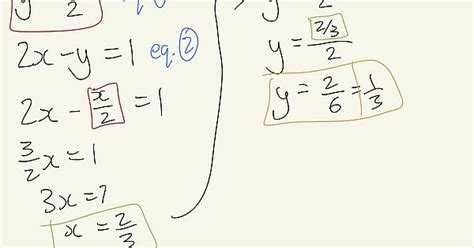 y = x/2 eq. ①
2x - y = 1 eq. ②
2x - x/2 = 1
3/2 x = 1
3x = 2
x = 2/3
y = (2/3)/2
y = 2/6 = 1/3